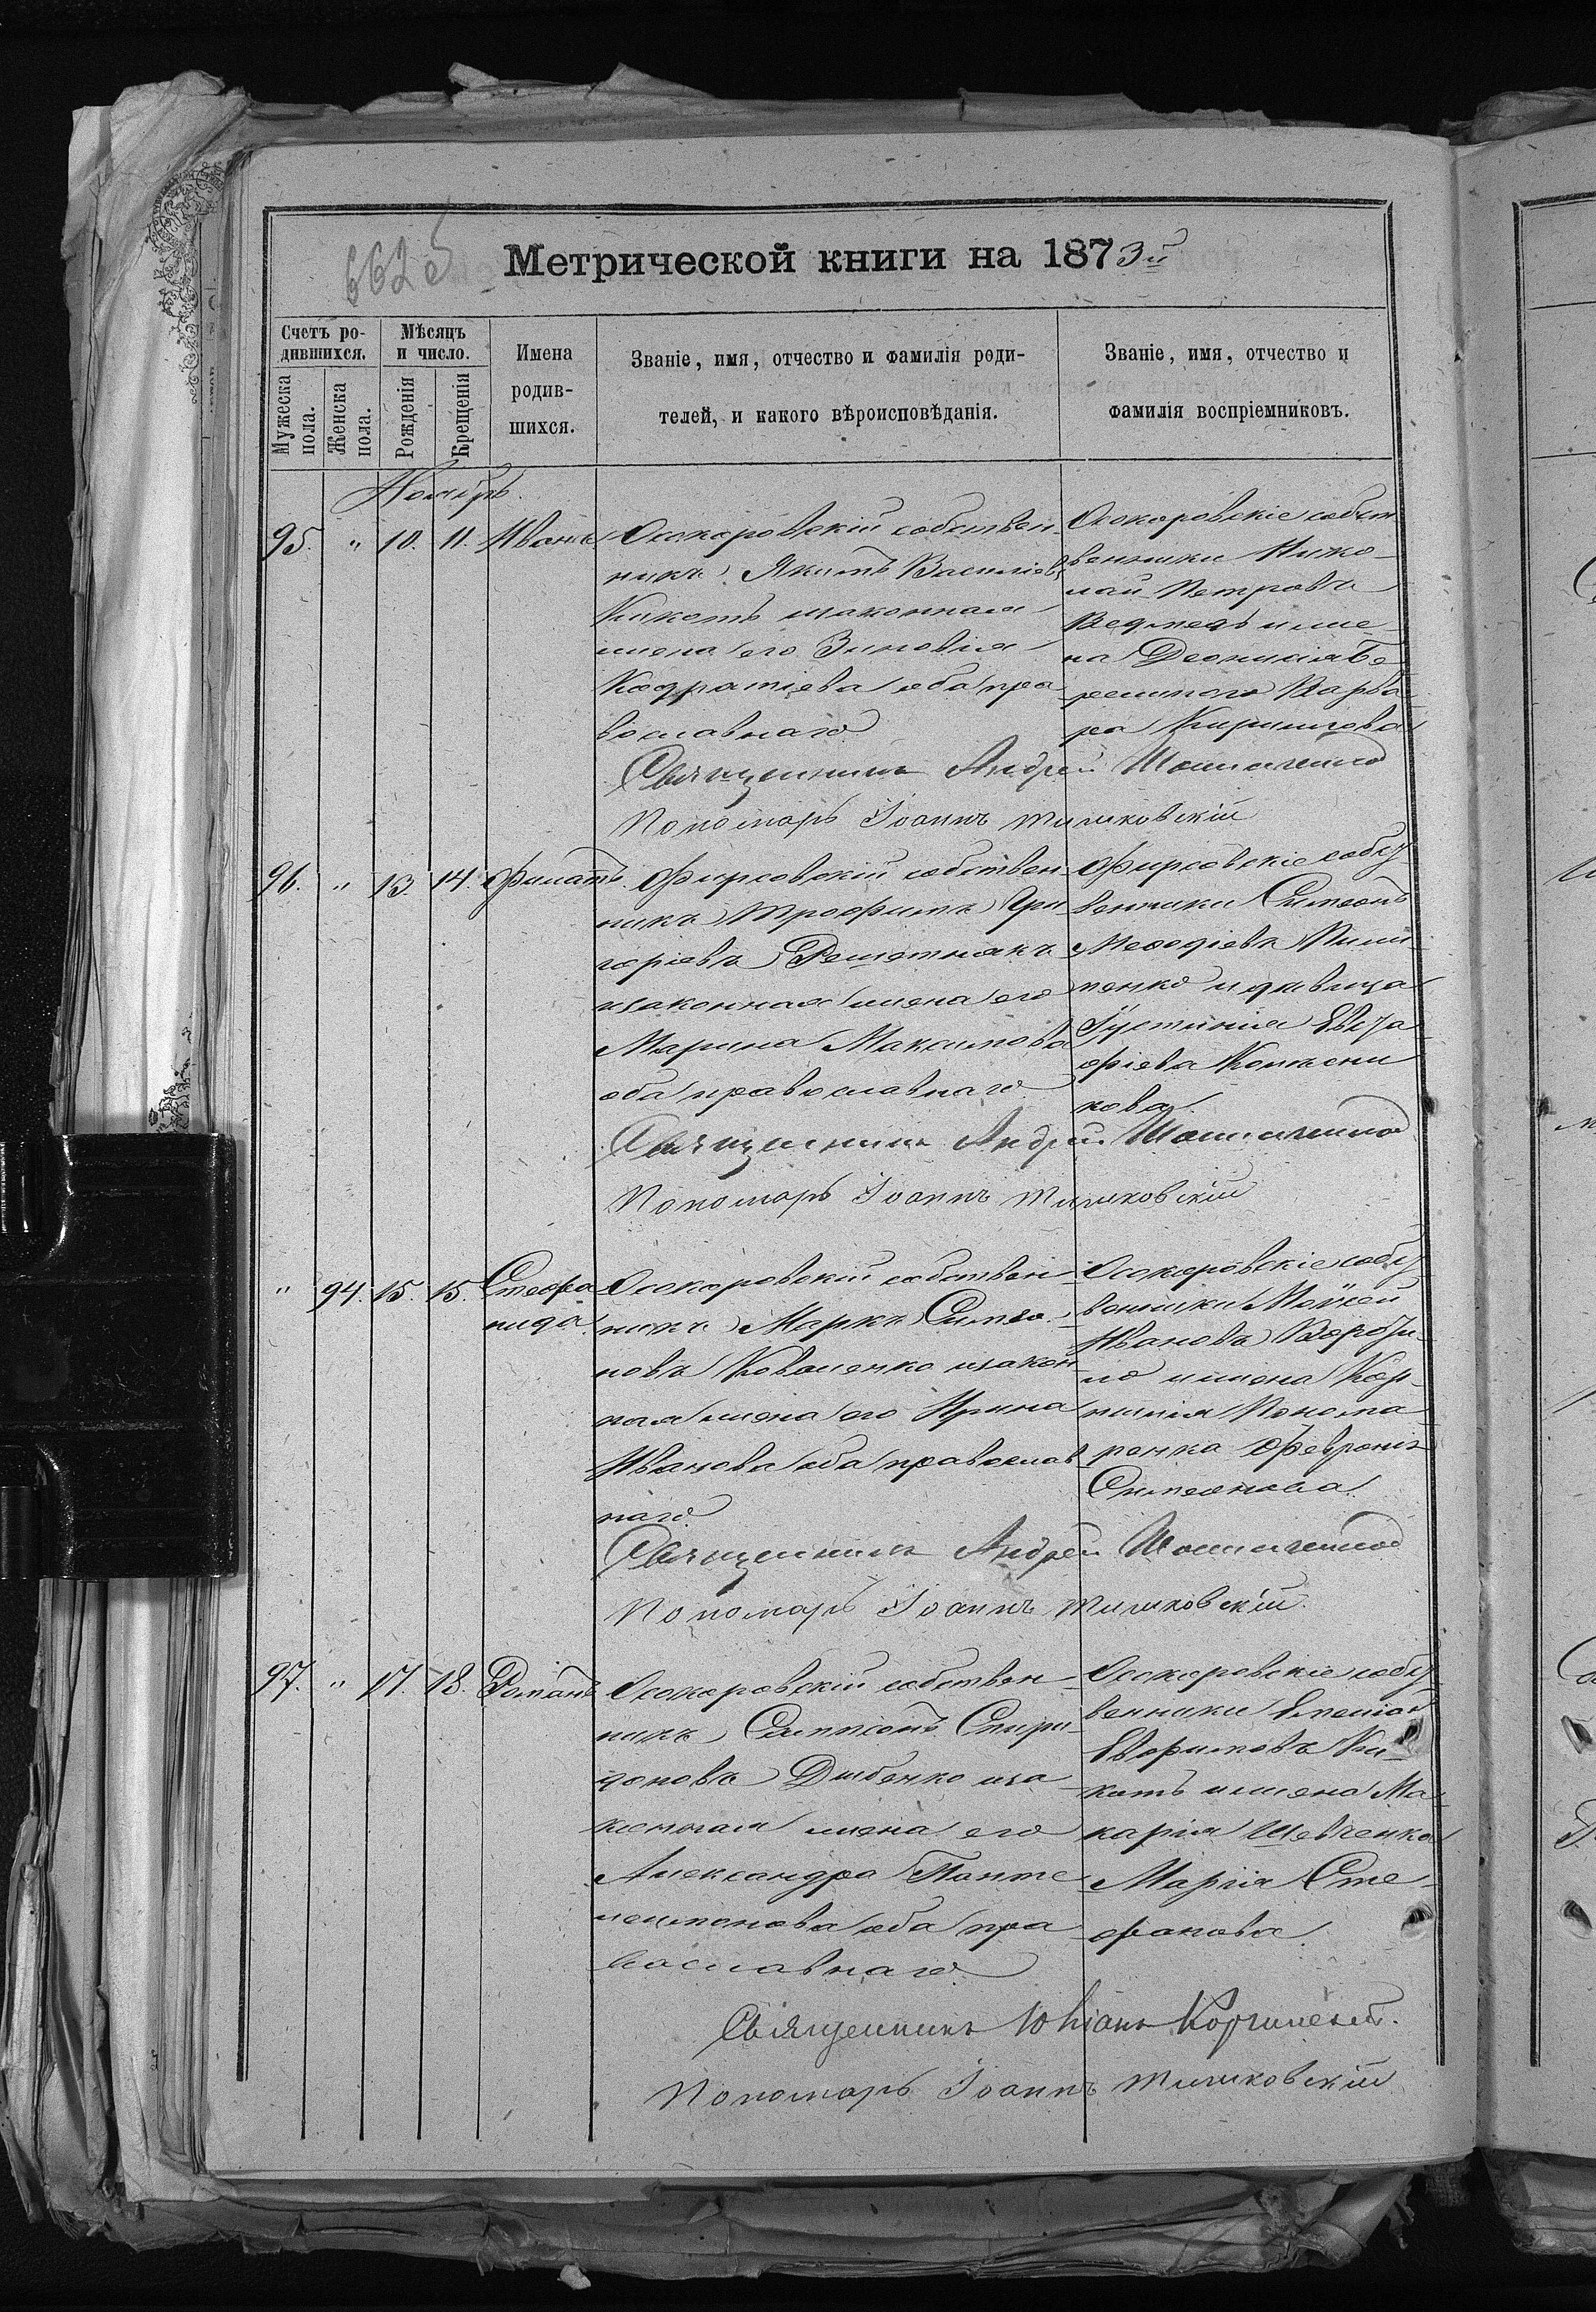 662
Метрической книги на 1873й
Счетъ ро-
дившихся.
Мужеска
пола.
Женска
пола.
Мѣсяцъ
и число.
Рожденія
Крещенія
Имена
родив-
шихся.
Званіе, имя, отчество и фамилія роди-
телей, и какого вѣроисповѣданія.
Званіе, имя, отчество и
фамилія воспріемниковъ.
Ноябрь.
95. " 10. 11. Иванъ
Осокоровскій собствен-
никъ Якимъ Василіевъ
Кикоть изаконная
жена его Зиновія
Кодратіева оба пра-
вославнаго
Осокоровскіе собст
венники Нико-
лай Петровъ
Ведмедь и же-
на Деонисія Бе-
режного Варва
ра Кирилова
Священникъ Андрей
Пономарь Іоаннъ Тишковскій
96. " 13. 14. Филатъ.
Фирсовскій собствен
никъ Трофимъ Гри-
горіевъ Решетнякъ
изаконная жена его
Марина Максимова
оба православнаго
Фирсовскіе собст
венники Симеонъ
Меѳодіевъ Пили-
пенко и дѣвица
Іустинія Евста
фіева Колѣсни
кова.
Священникъ Андрей
Пономарь Іоаннъ Тишковскій
" 94. 15. 15. Стефа
нида.
Осокоровскій собствен-
никъ Маркъ Симео-
новъ Коваленко изакон
ная жена его Ирина
Иванова оба православ
наго
Осокоровскіе собст
венники Моѵсей
Ивановъ
но и жена Кор-
нилія Понома-
ренка Февронія
Симеонова.
Священникъ Андрей
Пономарь Іоаннъ Тишковскій.
97. " 17. 18. Романъ
Осокоровскій собствен-
никъ Сампсонъ Спири-
доновъ Дибенко иза
конная жена его
Александра Панте
леимонова оба пра
вославнаго
Осокоровскіе собст
венники
Евфимовъ Ки-
коть и жена Ма
карія Шевченка
Марія Сте-
фанова.
Священникъ Юліанъ
Пономарь Іоаннъ Тишковскій